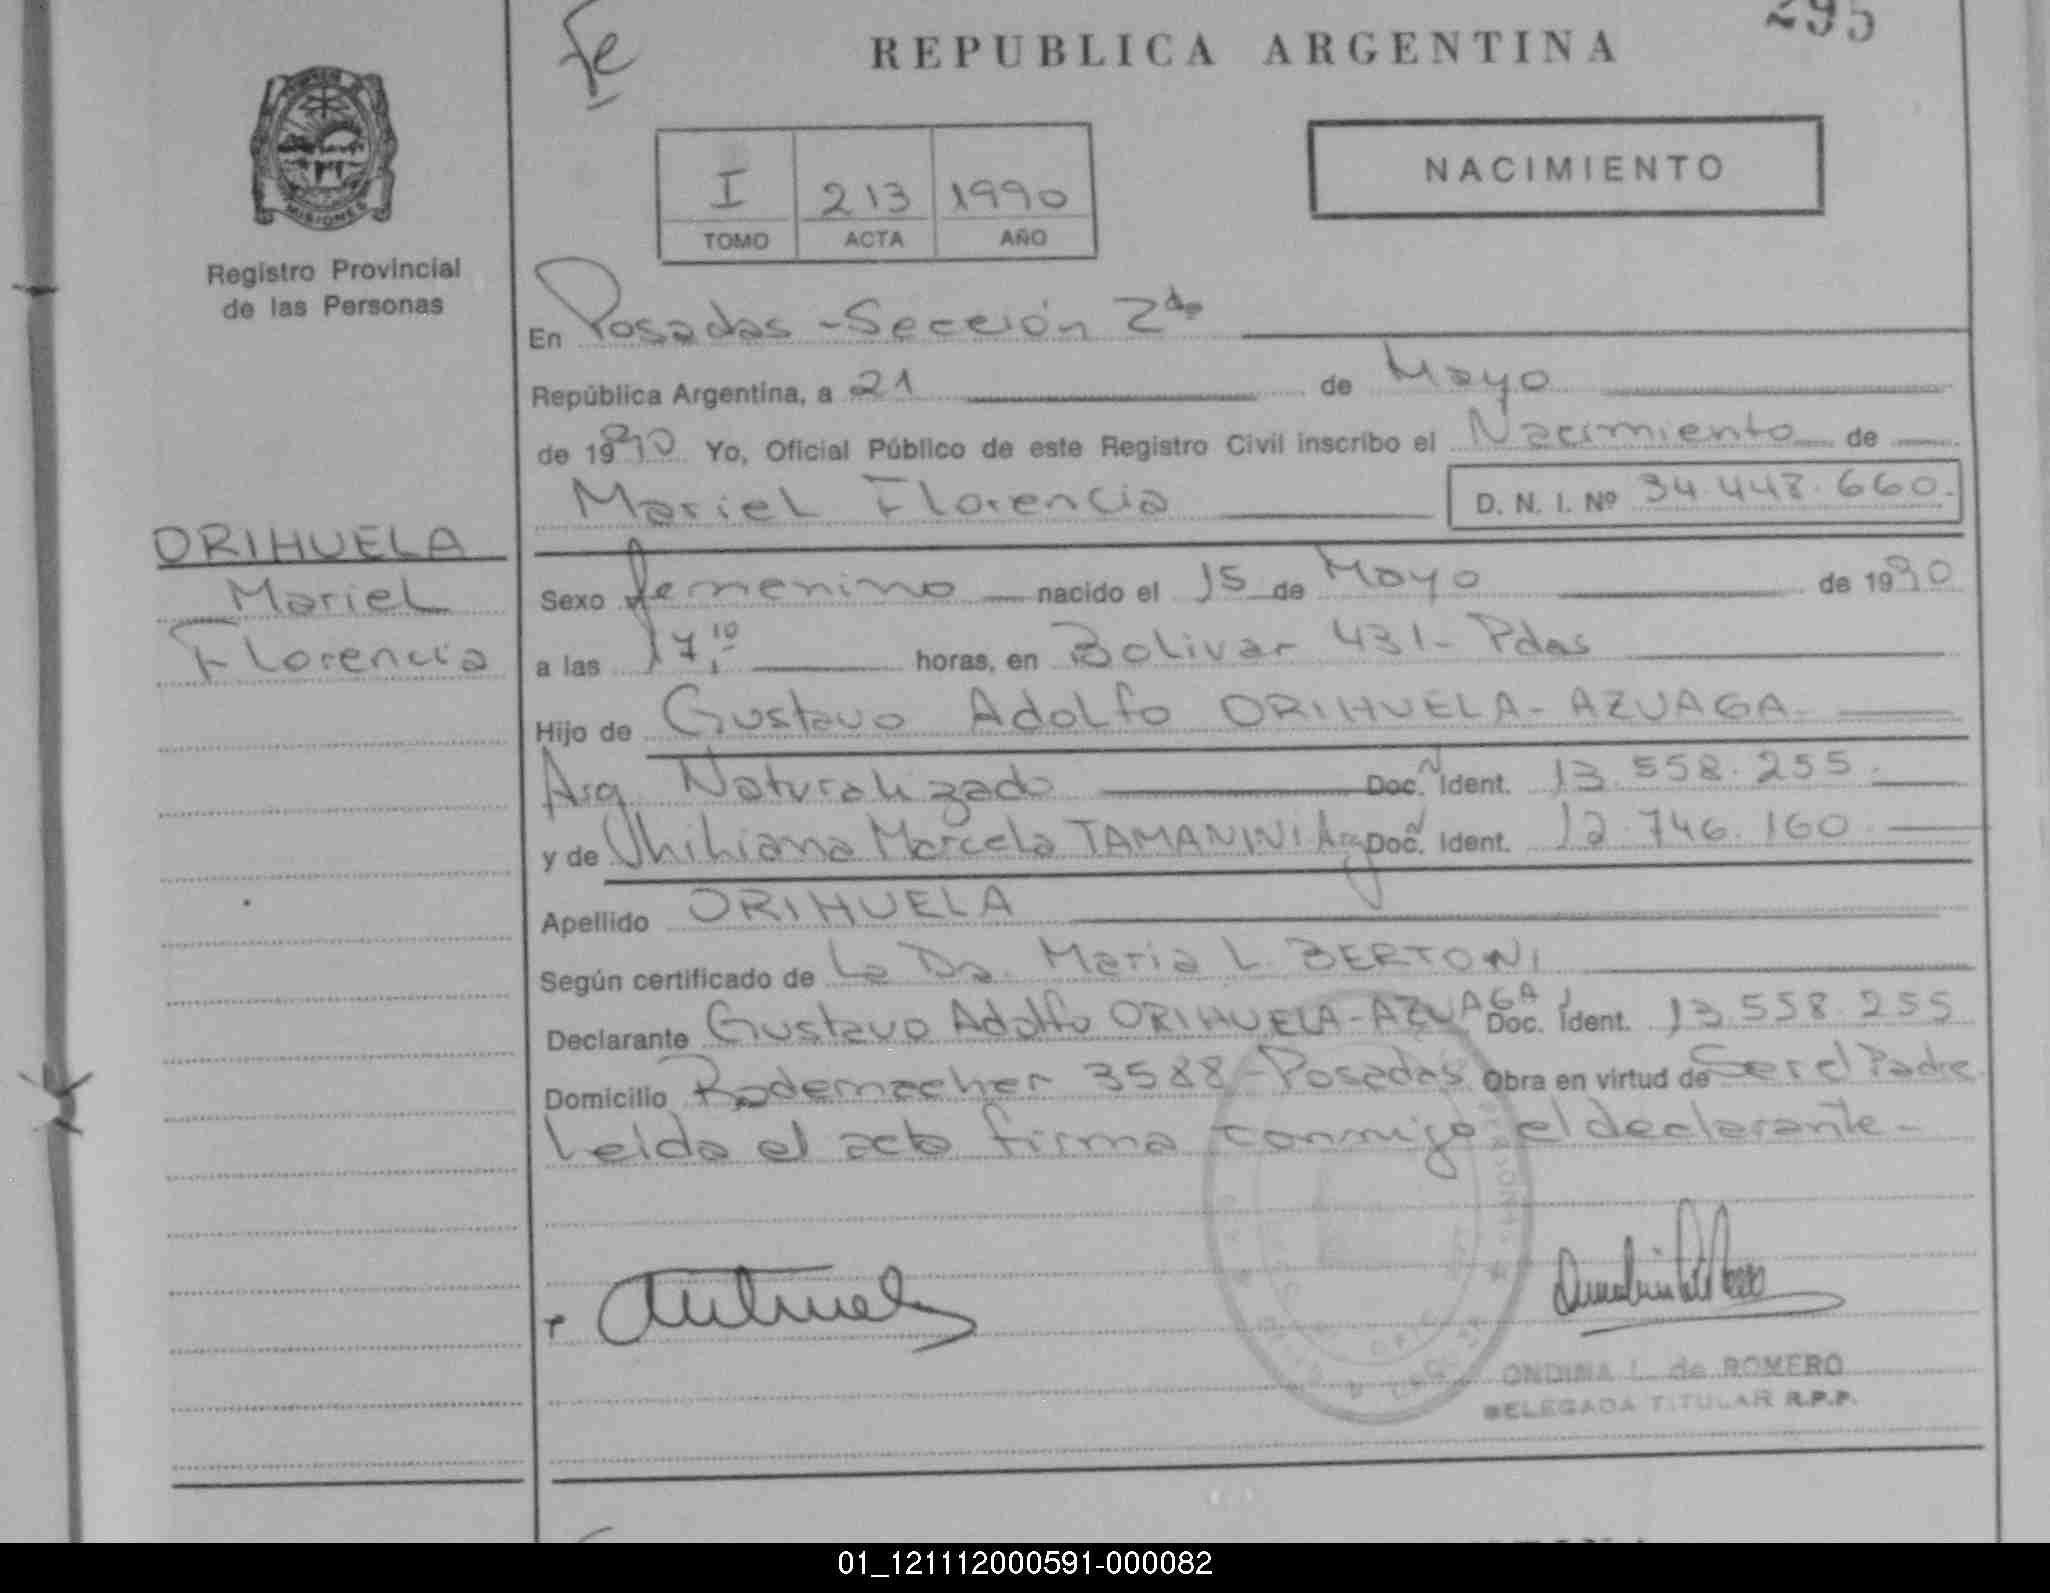 295
Fe
REPUBLICA ARGENTINA
MISIONES
Registro Provincial
de las Personas
I 213 1990
TOMO ACTA AÑO
NACIMIENTO
En Posadas - Sección 2da
República Argentina, a 21 de Mayo
de 1990 Yo, Oficial Público de este Registro Civil inscribo el Nacimiento de
Mariel Florencia D. N. I. Nº 34.448.660.
ORIHUELA
Mariel
Florencia
Sexo femenino nacido el 15 de Mayo de 1990
a las 17,10 horas, en Bolivar 431- Pdas
Hijo de Gustavo Adolfo ORIHUELA - AZUAGA
Arg Naturalizado Doc. Ident. 13.558.255.
y de Marcela TAMANINI Arg Doc. Ident. 12.746.160
Apellido ORIHUELA
Según certificado de La Da. Maria L. BERTONI
Declarante Gustavo Adolfo ORIHUELA - AZUAGA Doc. Ident. 13.558.255
Domicilio Rademacher 3588 - Posadas Obra en virtud de Ser el Padre
Leida el acta firma conmigo el declarante -
ONDINA L. de ROMERO
DELEGADA TITULAR R.P.P.
01_121112000591-000082